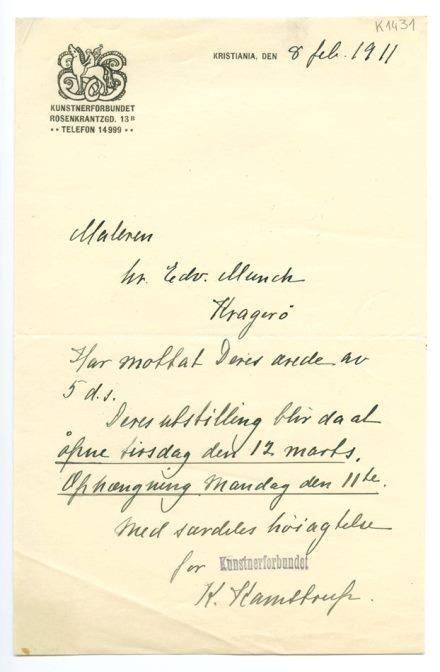 K1431
KRISTIANIA, DEN 8 feb. 1911
KUNSTNERFORBUNDET
ROSENKRANTZGD. 13 B
•• TELEFON 14999 ••
Maleren
hr. Edv. Munch
Kragerö
Har mottat Deres ærede av
5 d.s.
Deres utstilling blir da at
åpne tirsdag den 12 marts.
Ophængning mandag den 11te.
Med særdeles höiagtelse
for Kunstnerforbundet
K. Kamstrup.